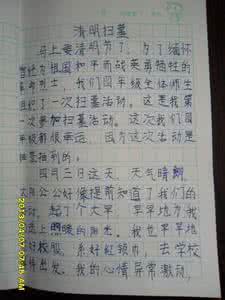 清明扫墓
马上要清明节了，为了缅怀
曾经为祖国和平而战英勇牺牲的
革命烈士，我们四年级全体师生
组织了一次扫墓活动。这是我第
一次参加扫墓活动。这次我们四
年级都很幸运，因为这次活动是
抽到的。
四月三日这天，天气晴朗，
太阳公公好像提前知道了我们的
活动，起了个大早，早早地为我
送上照暖的阳光。我也早早地
好校服，系好红领巾，去学校
出发。我的心情异常激动，
2013/04/07 07:45 AM